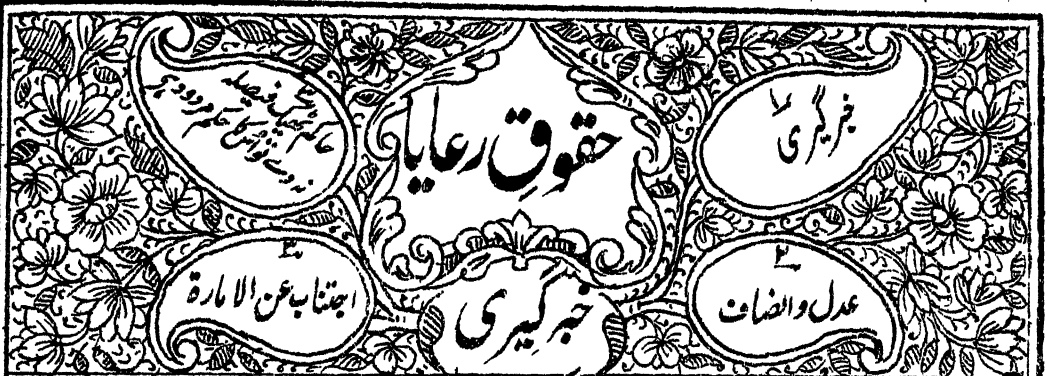 حقوق رعایا
۱
خبر گیری
۲
عدل و انصاف
۳
اجتناب عن الامارة
حاکم
فیصلہ
نہ دے تو اس کا حکم مردود ہے
خبر گیری